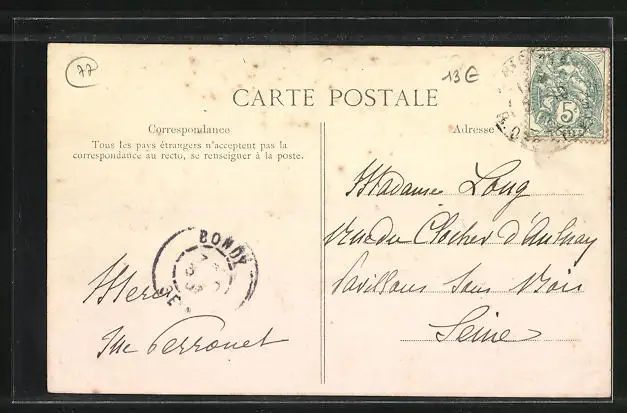 77
13€
CARTE POSTALE
Correspondance
Tous les pays étrangers n'acceptent pas la
correspondance au recto, se renseigner à la poste.
Adresse
5c
Madame Long
rue du Clocher d'Aulnay
Pavillons sous Bois
Seine
BONDY
SEINE
Merci
Perronet